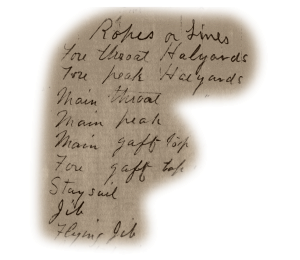 Ropes or Lines
Fore throat Halyards
Fore peak Halyards
Main throat
Main peak
Main gaff top
Fore gaff top
Staysail
Jib
Flying Jib